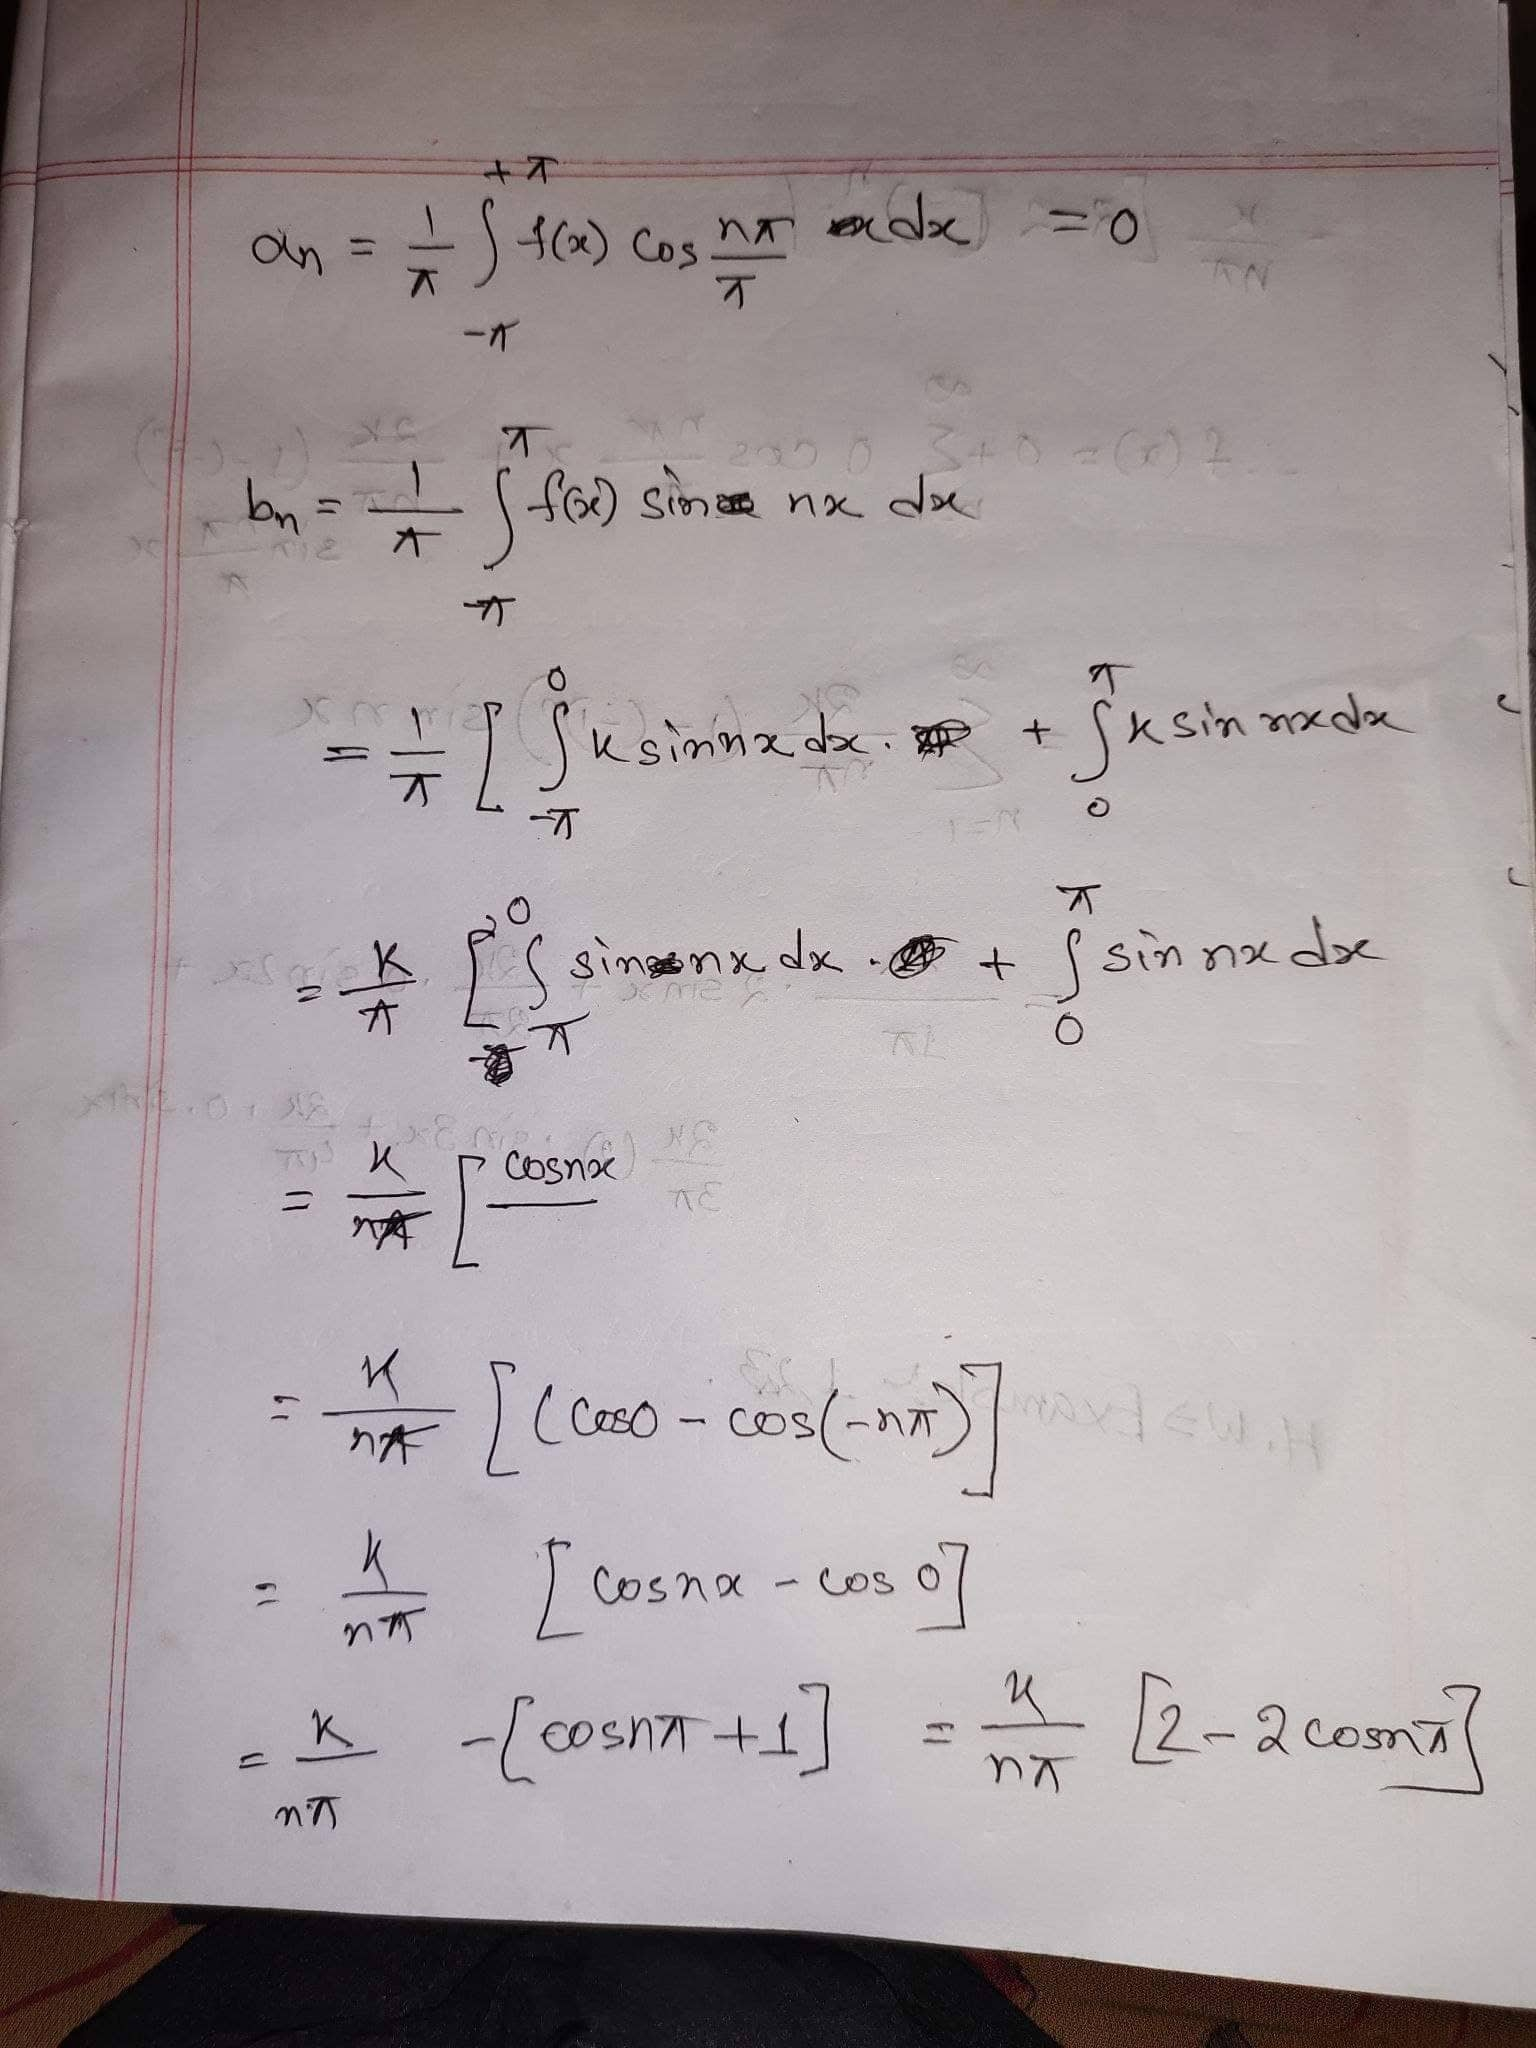 an = 1/π ∫_{-π}^{+π} f(x) cos nπ/π x dx = 0
bn = 1/π ∫_{-π}^{π} f(x) sin nx dx
= 1/π [ ∫_{-π}^{0} K sin nx dx . + ∫_{0}^{π} K sin nx dx
= K/π [ ∫_{-π}^{0} sin nx dx . + ∫_{0}^{π} sin nx dx
= K/nπ [ cosnx
= K/nπ [ (cos0 - cos(-nπ) ]
= K/nπ [ cosnx - cos 0 ]
= K/nπ -[cosnπ + 1] = K/nπ [2 - 2 cosnπ]